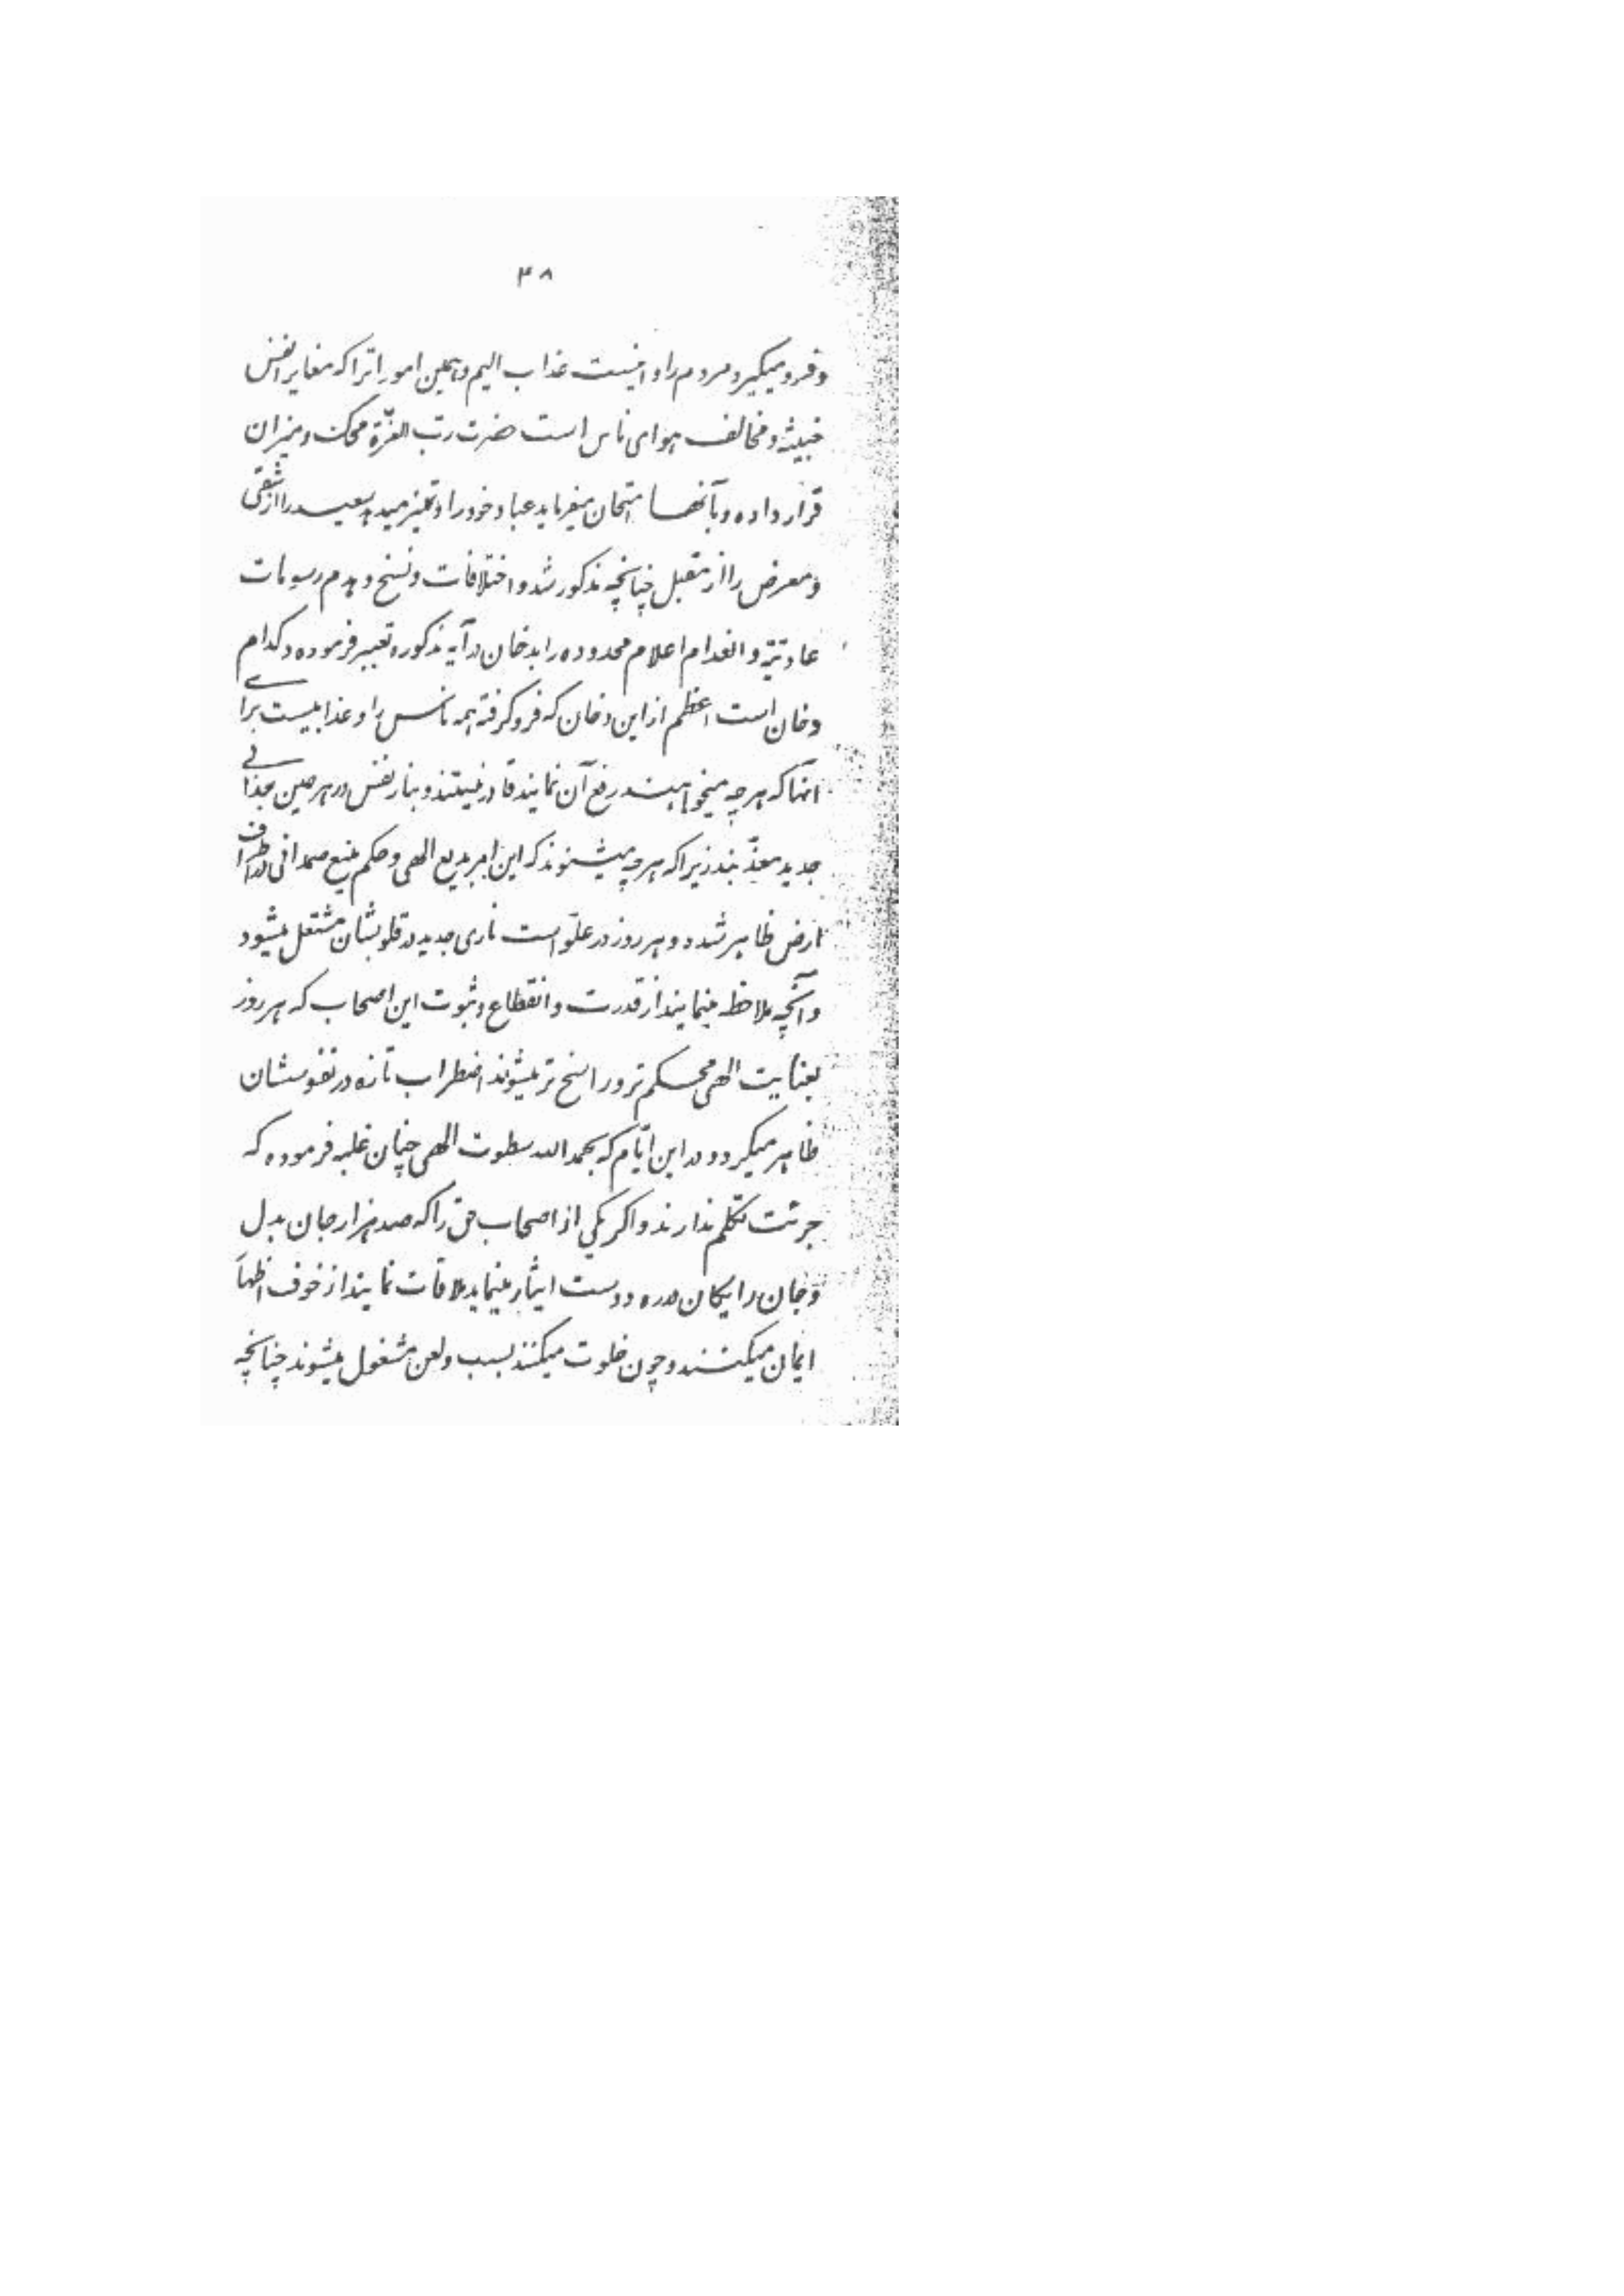 ۴۸
و فرو میگیرد مردم را و اینست عذاب الیم و همین اموراتی را که مغایر انفس
خبیثه و مخالف هوای ناس است حضرت ربّ العزّة محک و میزان
قرار داده و بآنها امتحان میفرماید عباد خود را و تمیز میدهد سعید را از شقی
و معرض را از مقبل چنانچه مذکور شد و اختلافات و نسخ و هدم رسومات
عادتیّه و انعدام اعلام محدوده را بدخان در آیه مذکوره تعبیر فرموده و کدام
دخان است اعظم از این دخان که فرو گرفته همه ناس را و عذابیست برای
آنها که هرچه میخواهند رفع آن نمایند قادر نیستند و بنار نفس در هر حین بعذابی
جدید معذّبند زیرا که هرچه میشنوند که این امر بدیع الهی و حکم منیع صمدانی در اطراف
ارض ظاهر شده و هر روز در علوّ است ناری جدید در قلوبشان مشتعل میشود
و آنچه ملاحظه مینمایند از قدرت و انقطاع و ثبوت این اصحاب که هر روز
بعنایت الهی محکم تر و راسخ تر میشوند اضطراب تازه در نفوسشان
ظاهر میگردد در این ایّام که بحمد الله سطوت الهی چنان غلبه فرموده که
جرئت تکلّم ندارند و اگر یکی از اصحاب حق را که صد هزار جان بدل
و جان رایگان در ره دوست ایثار مینماید ملاقات نمایند از خوف اظهار
ایمان میکنند و چون خلوت میکنند بسبّ و لعن مشغول میشوند چنانچه